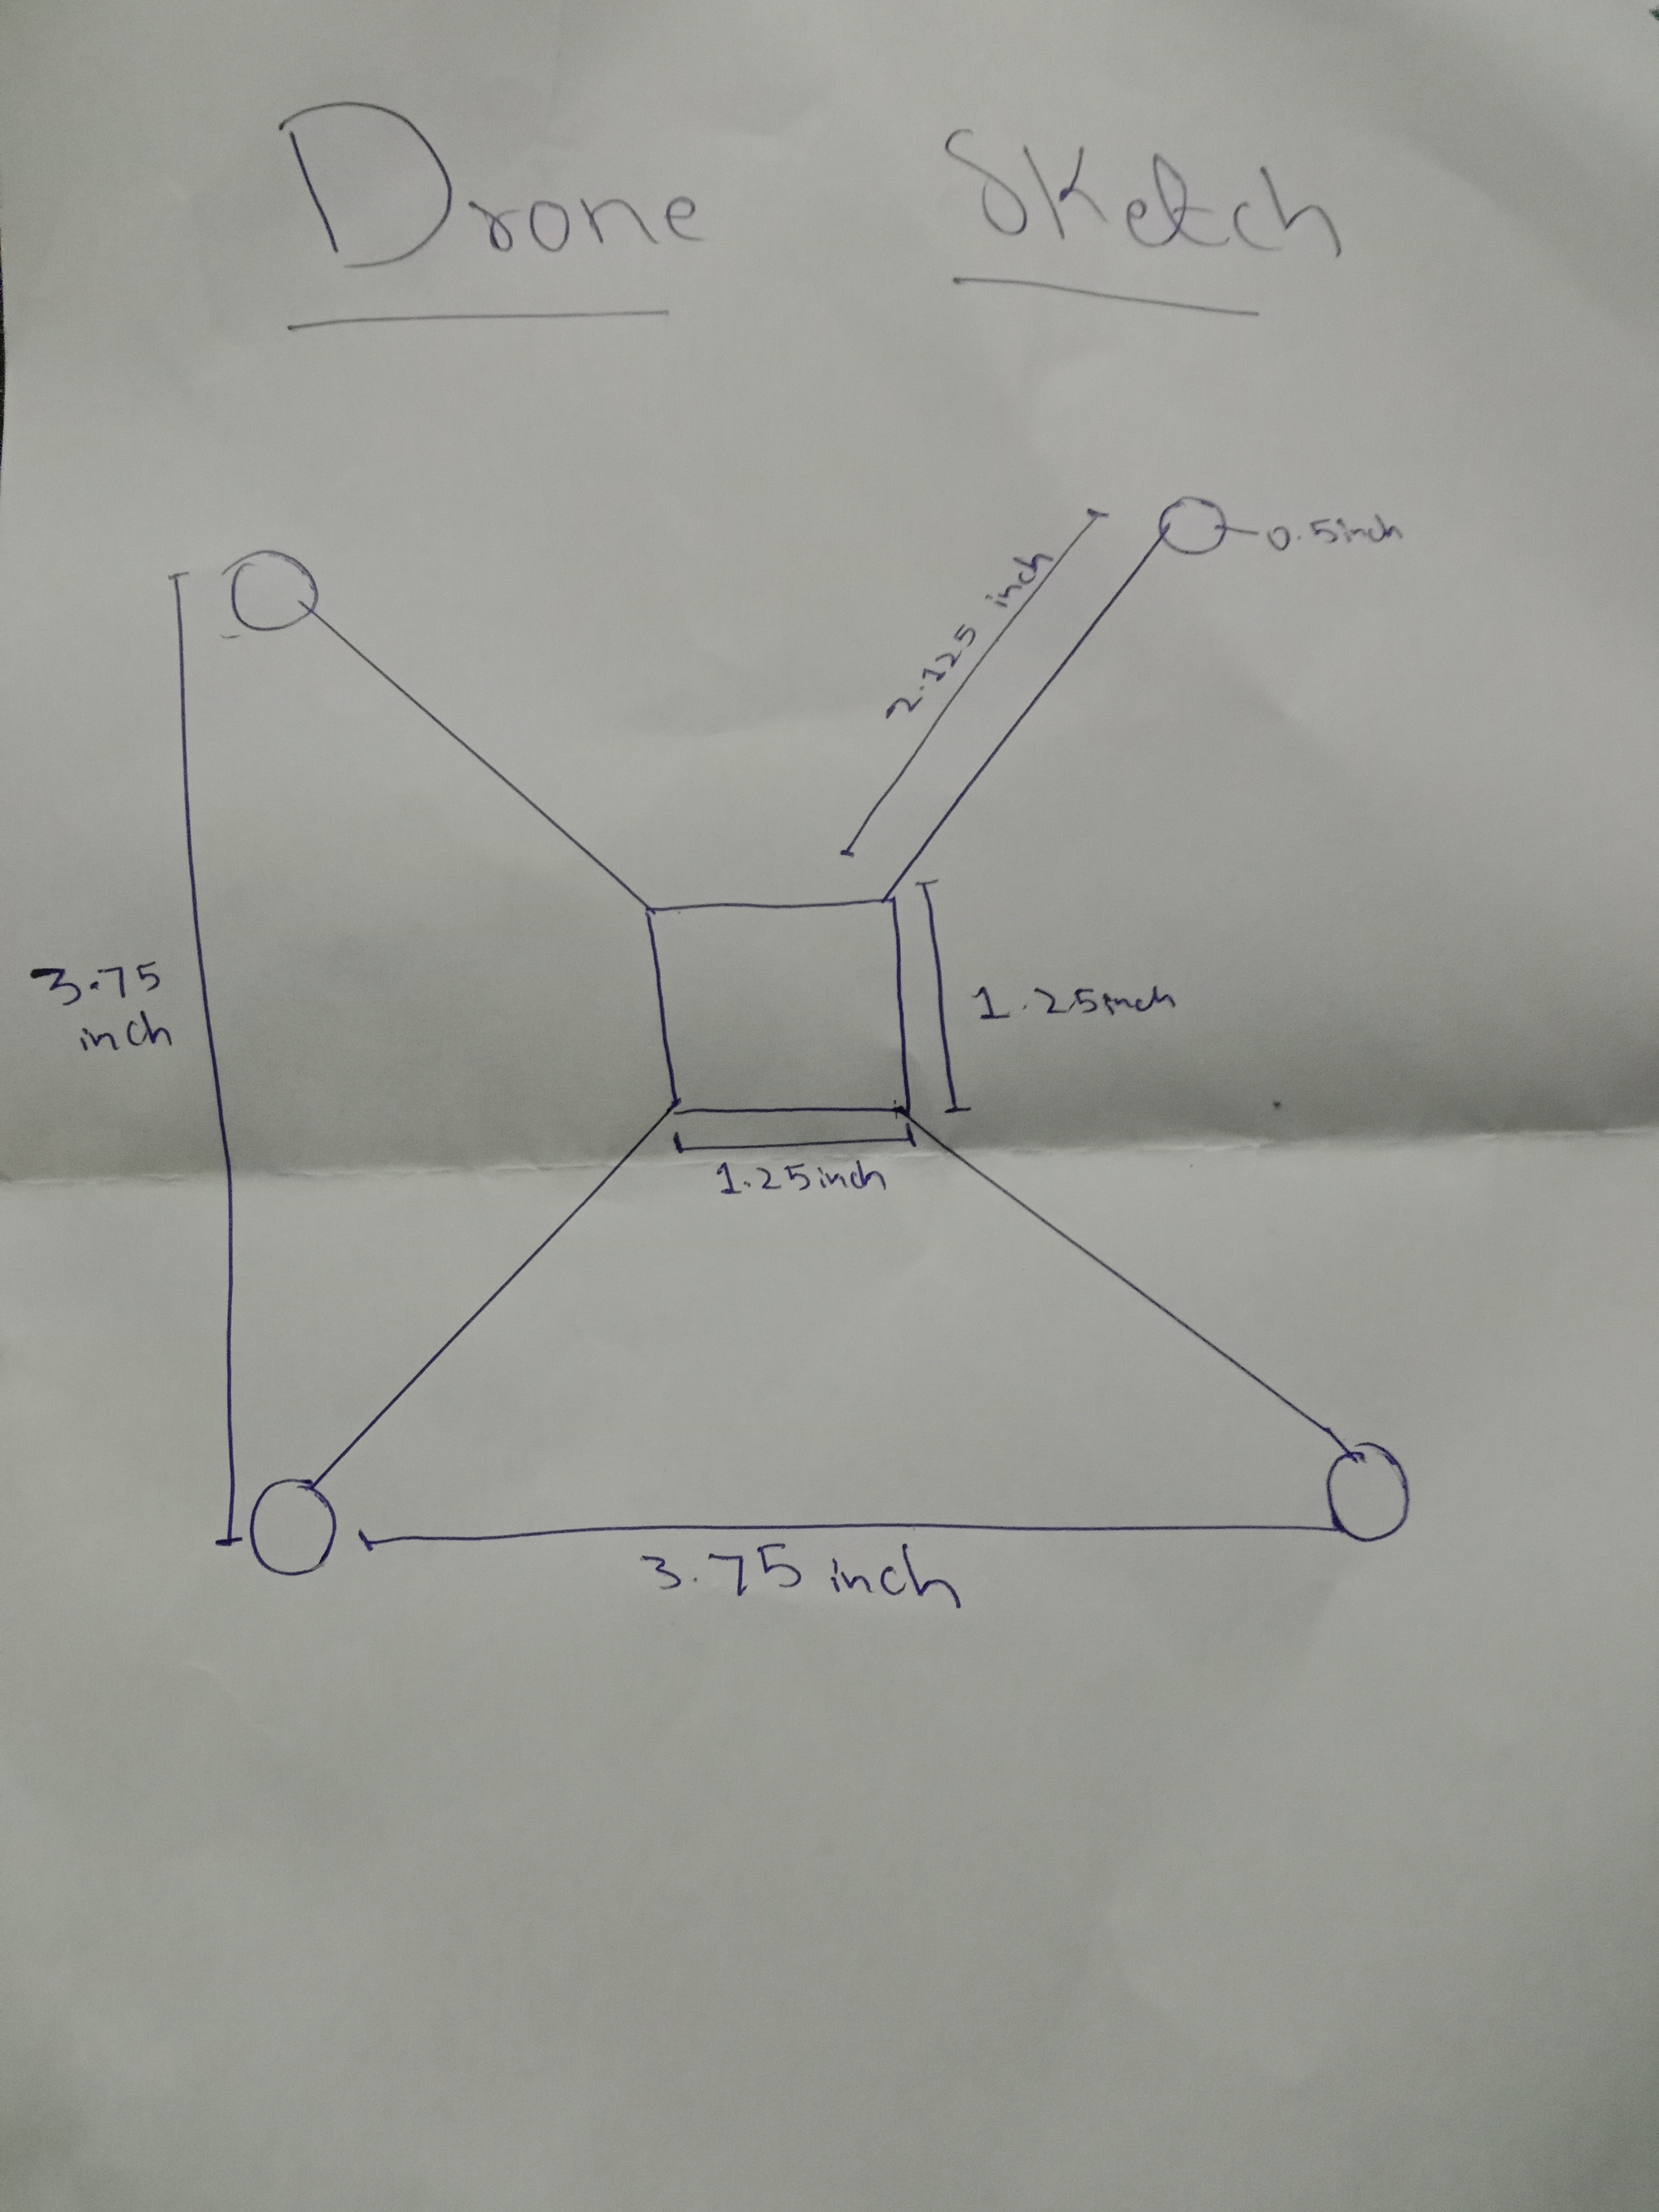 Drone Sketch
0.5inch
2.125 inch
3.75
inch
1.25inch
1.25inch
3.75 inch